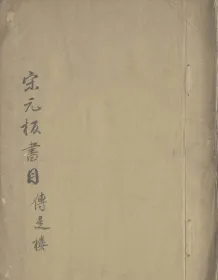 宋元板書目
傳是樓